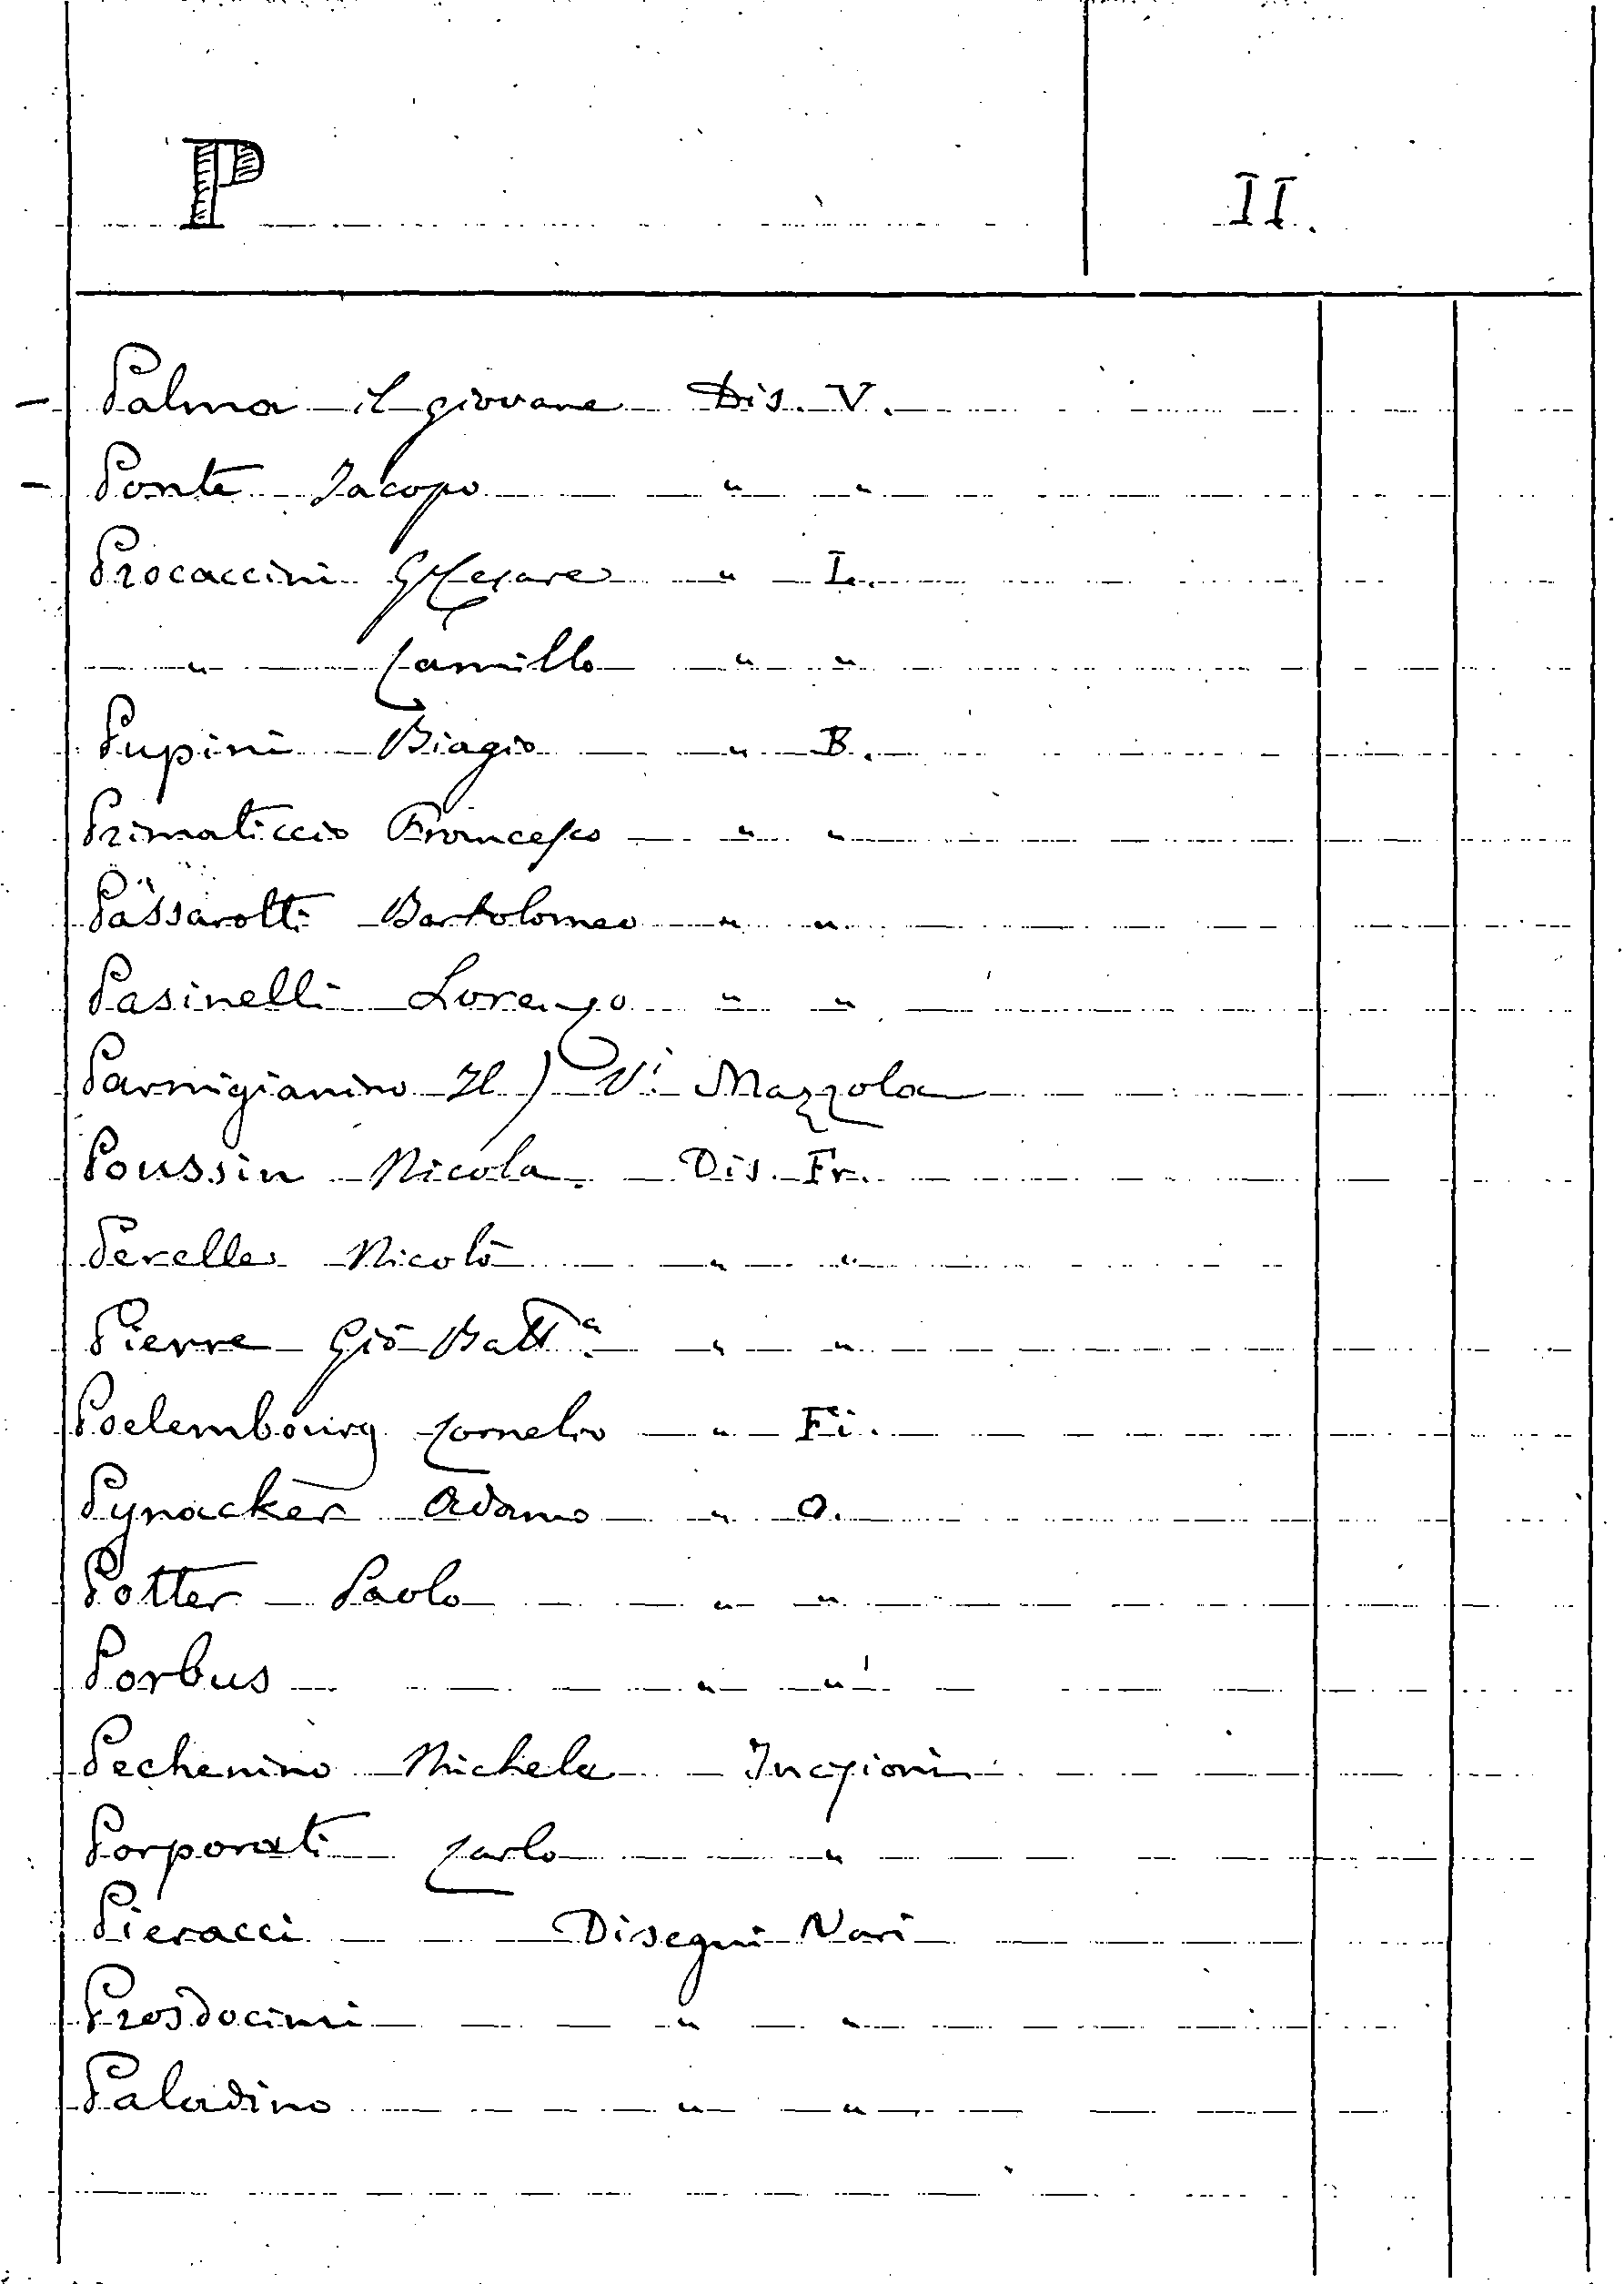 P II.
- Palma il giovane Dis. V.
- Ponte Jacopo " "
Procaccini G. Cesare " L.
" Camillo " "
Pupini Biagio " B.
Primaticcio Francesco " "
Passarotti Bartolomeo " "
Pasinelli Lorenzo " "
Parmigianino Il) Vi Mazzola
Poussin Nicola. Dis. Fr.
Perelle Nicolò " "
Pierre Giò Batta " "
Poelembourg Cornelio " Fi.
Pynacker Adamo " O.
Potter Paolo " "
Porbus " "
Pechenino Michela Incisioni
Porporati Carlo "
Pieracci Disegni Vari
Prosdocimi " "
Paladino " "